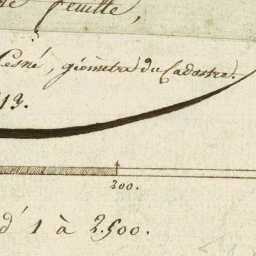 feuille,
Lesné, géomètre du Cadastre.
13.
200.
d' 1 à 2.500.